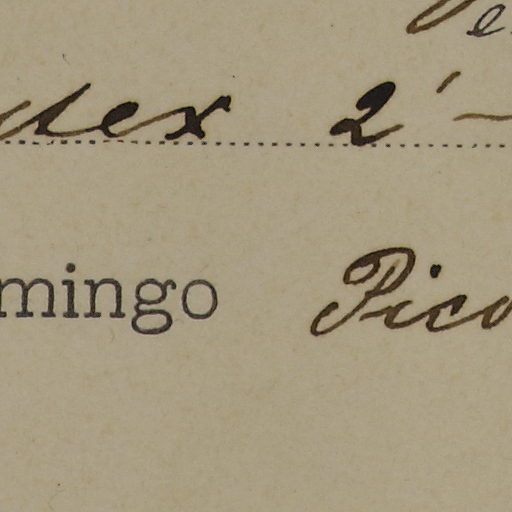 e
ex 2' —
mingo Pico